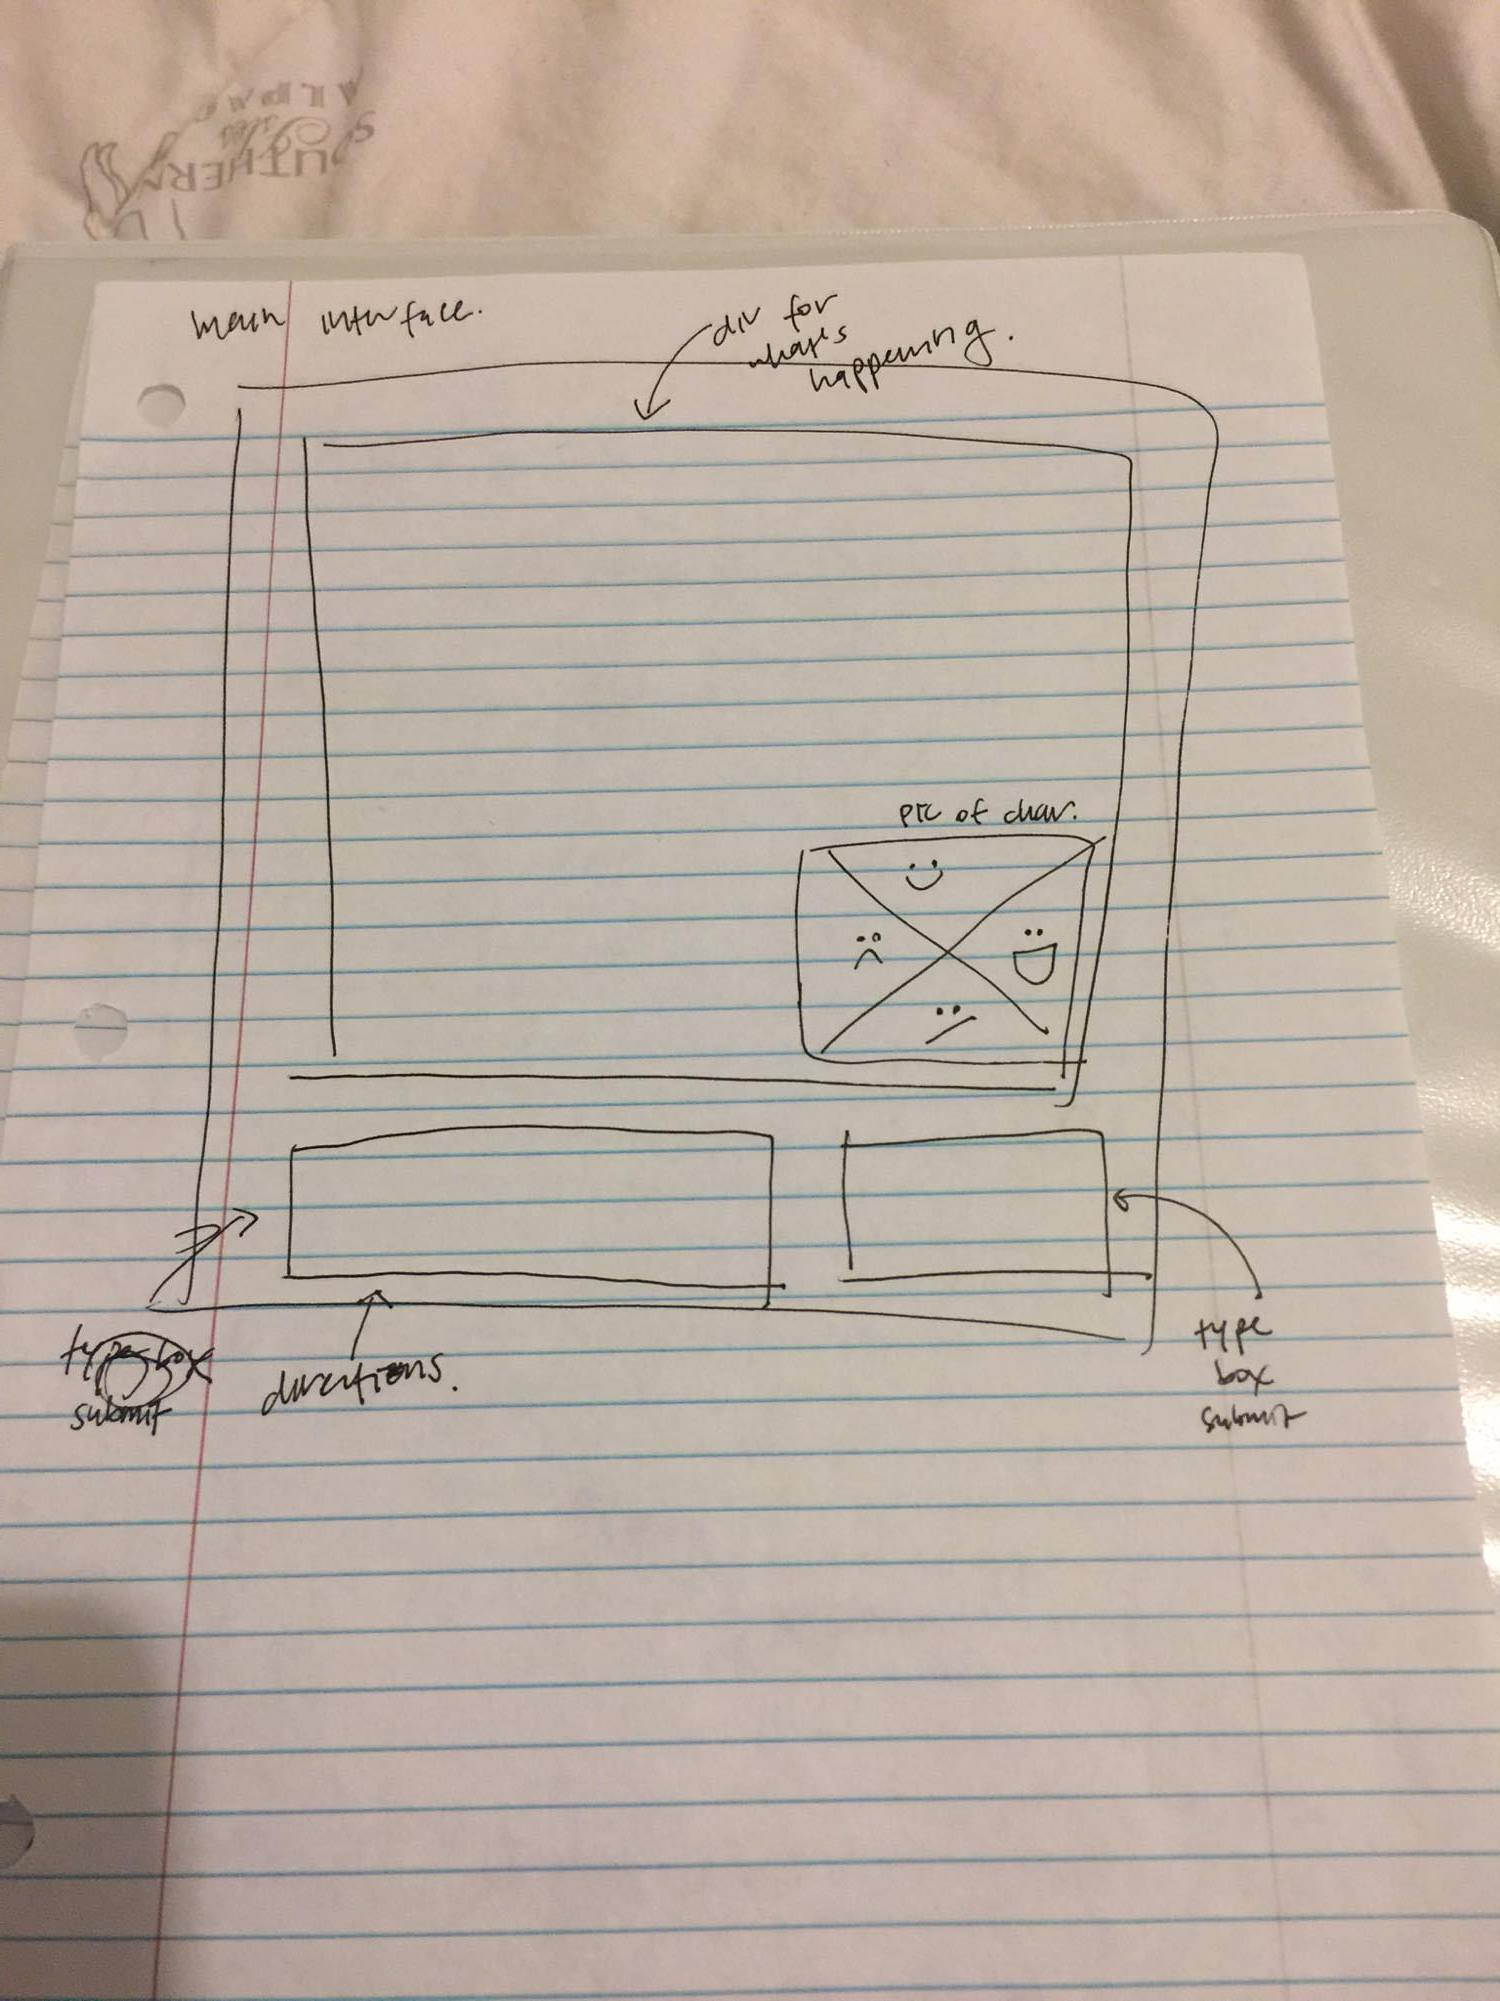 main interface.
div for
what's
happening.
pic of char.
type box
submit
directions.
type
box
submit
SOUTHERN